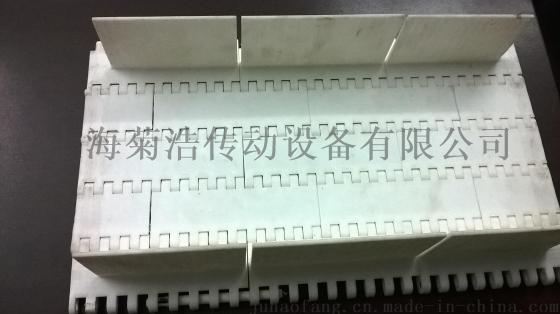 海菊浩传动设备有限公司
juhaofang.cn.made-in-china.com